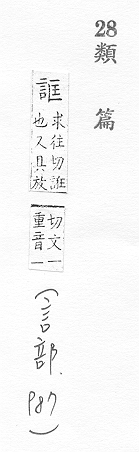 28
類篇
誆
求往切誑
也又具放
切文一
重音一
(言部. P87)